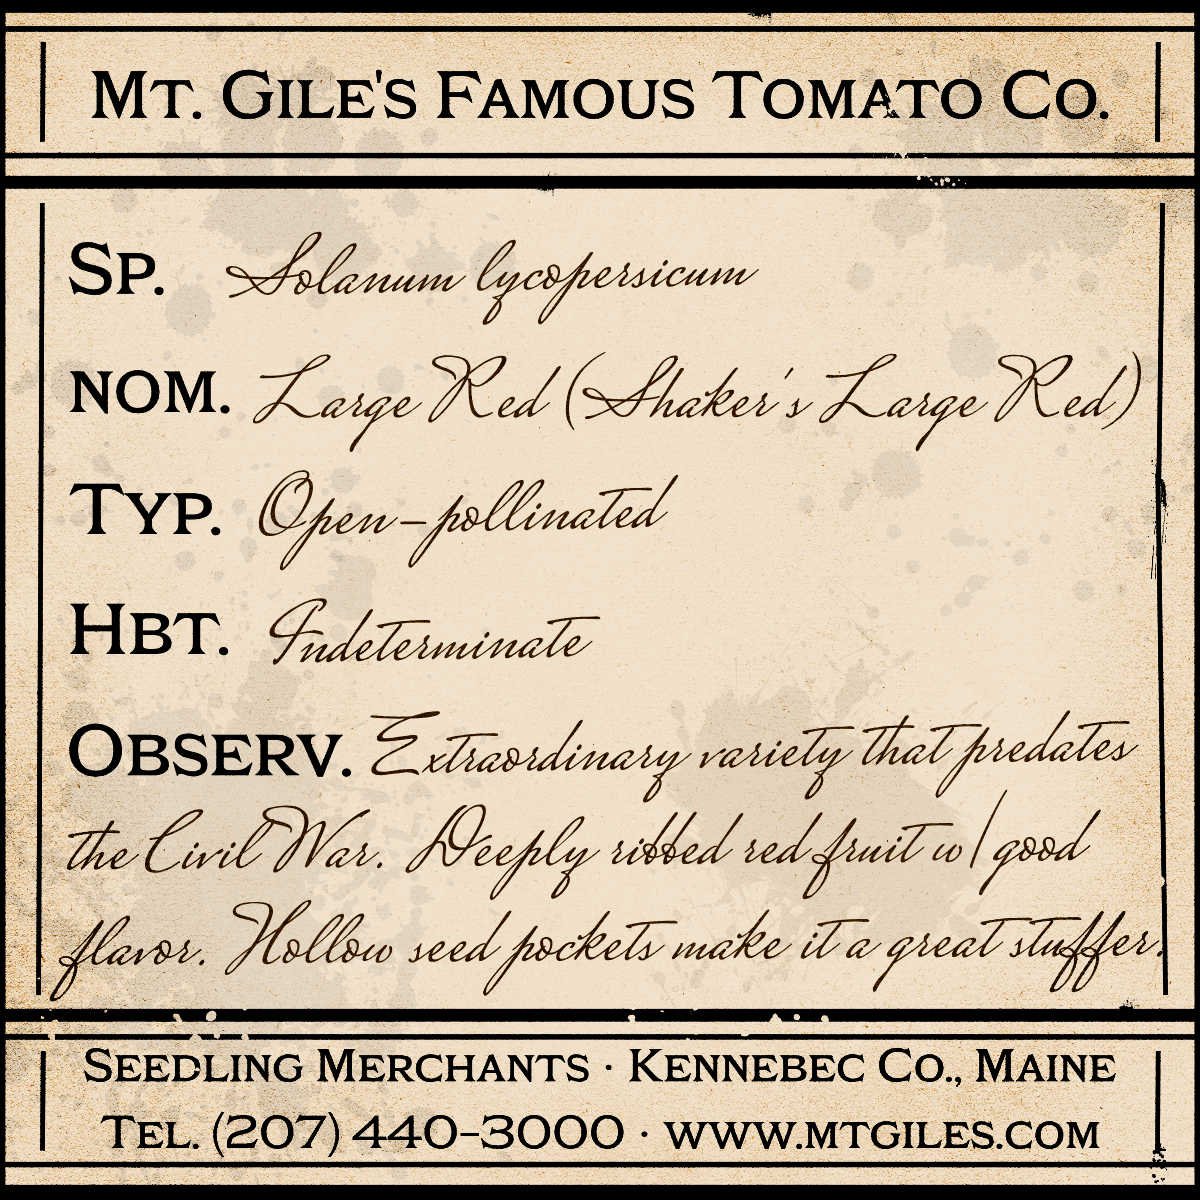 Mt. Gile's Famous Tomato Co.
Sp. Solanum lycopersicum
NOM. Large Red (Shaker's Large Red)
Typ. Open-pollinated
Hbt. Indeterminate
Observ. Extraordinary variety that predates
the Civil War. Deeply ribbed red fruit w/ good
flavor. Hollow seed pockets make it a great stuffer.
Seedling Merchants · Kennebec Co., Maine
Tel. (207) 440-3000 · www.mtgiles.com